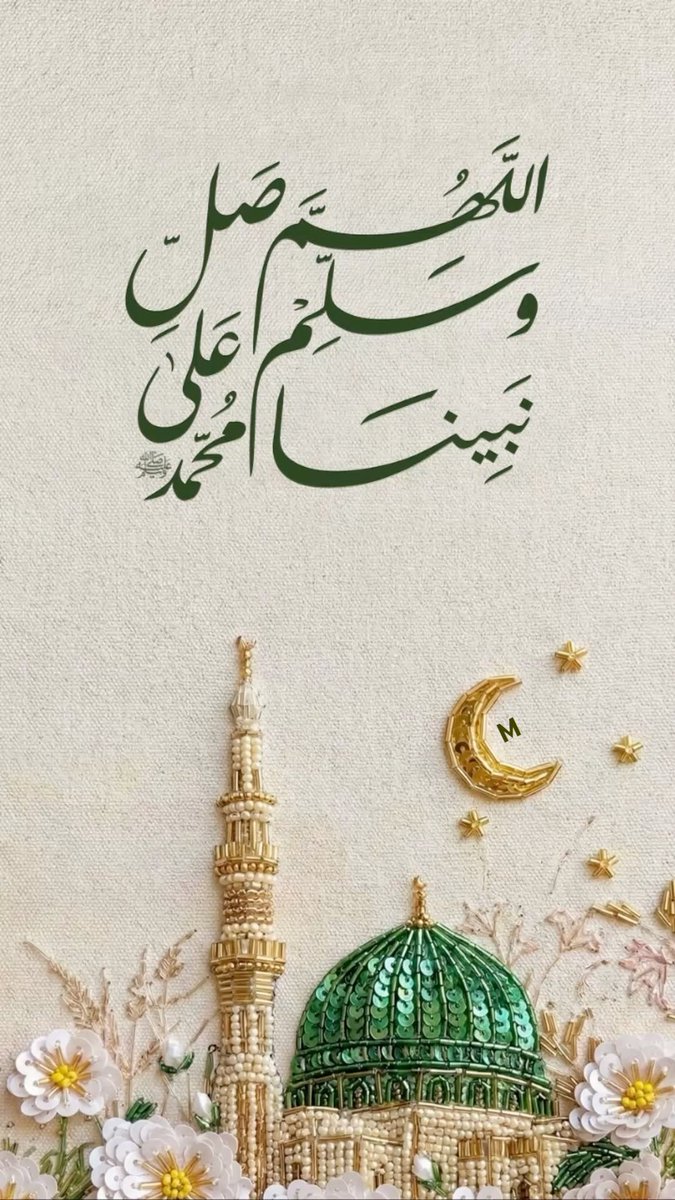 اللَّهُمَّ صَلِّ
وَسَلِّمْ عَلىٰ
نَبِينَا مُحَمَّد ﷺ
M